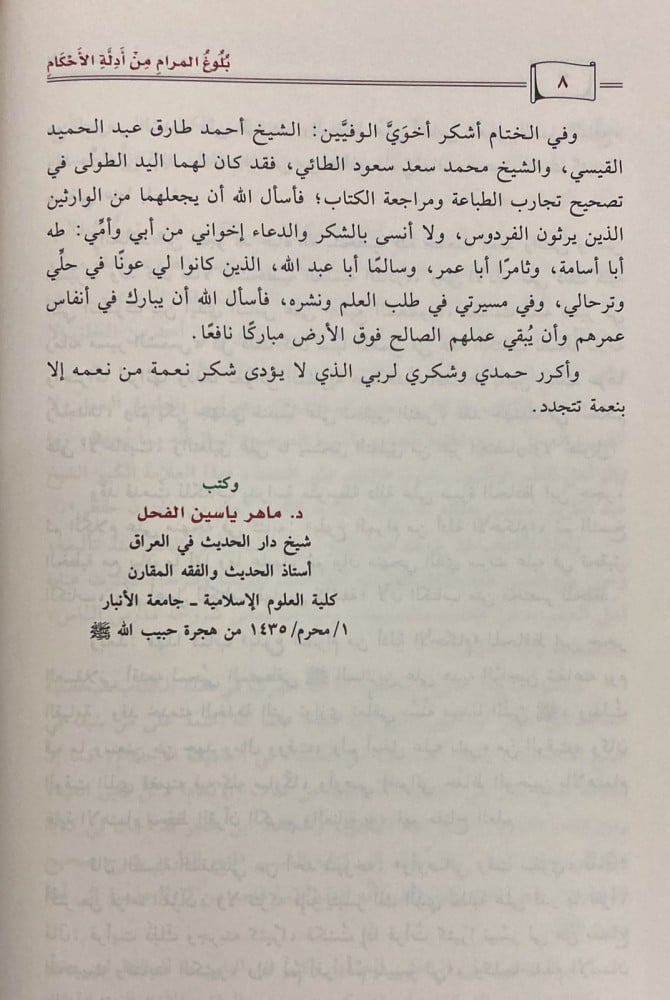 بُلُوغُ المرامِ مِنْ أَدِلَّةِ الأَحْكَامِ
٨
وفي الختام أشكر أخوَيَّ الوفيَّين: الشيخ أحمد طارق عبد الحميد
القيسي، والشيخ محمد سعد سعود الطائي، فقد كان لهما اليد الطولى في
تصحيح تجارب الطباعة ومراجعة الكتاب؛ فأسأل الله أن يجعلهما من الوارثين
الذين يرثون الفردوس، ولا أنسى بالشكر والدعاء إخواني من أبي وأمِّي: طه
أبا أسامة، وثامرًا أبا عمر، وسالمًا أبا عبد الله، الذين كانوا لي عونًا في حلِّي
وترحالي، وفي مسيرتي في طلب العلم ونشره، فأسأل الله أن يبارك في أنفاس
عمرهم وأن يُبقي عملهم الصالح فوق الأرض مباركًا نافعًا.
وأكرر حمدي وشكري لربي الذي لا يؤدى شكر نعمة من نعمه إلا
بنعمة تتجدد.
وكتب
د. ماهر ياسين الفحل
شيخ دار الحديث في العراق
أستاذ الحديث والفقه المقارن
كلية العلوم الإسلامية ـ جامعة الأنبار
١/محرم/١٤٣٥ من هجرة حبيب الله ﷺ